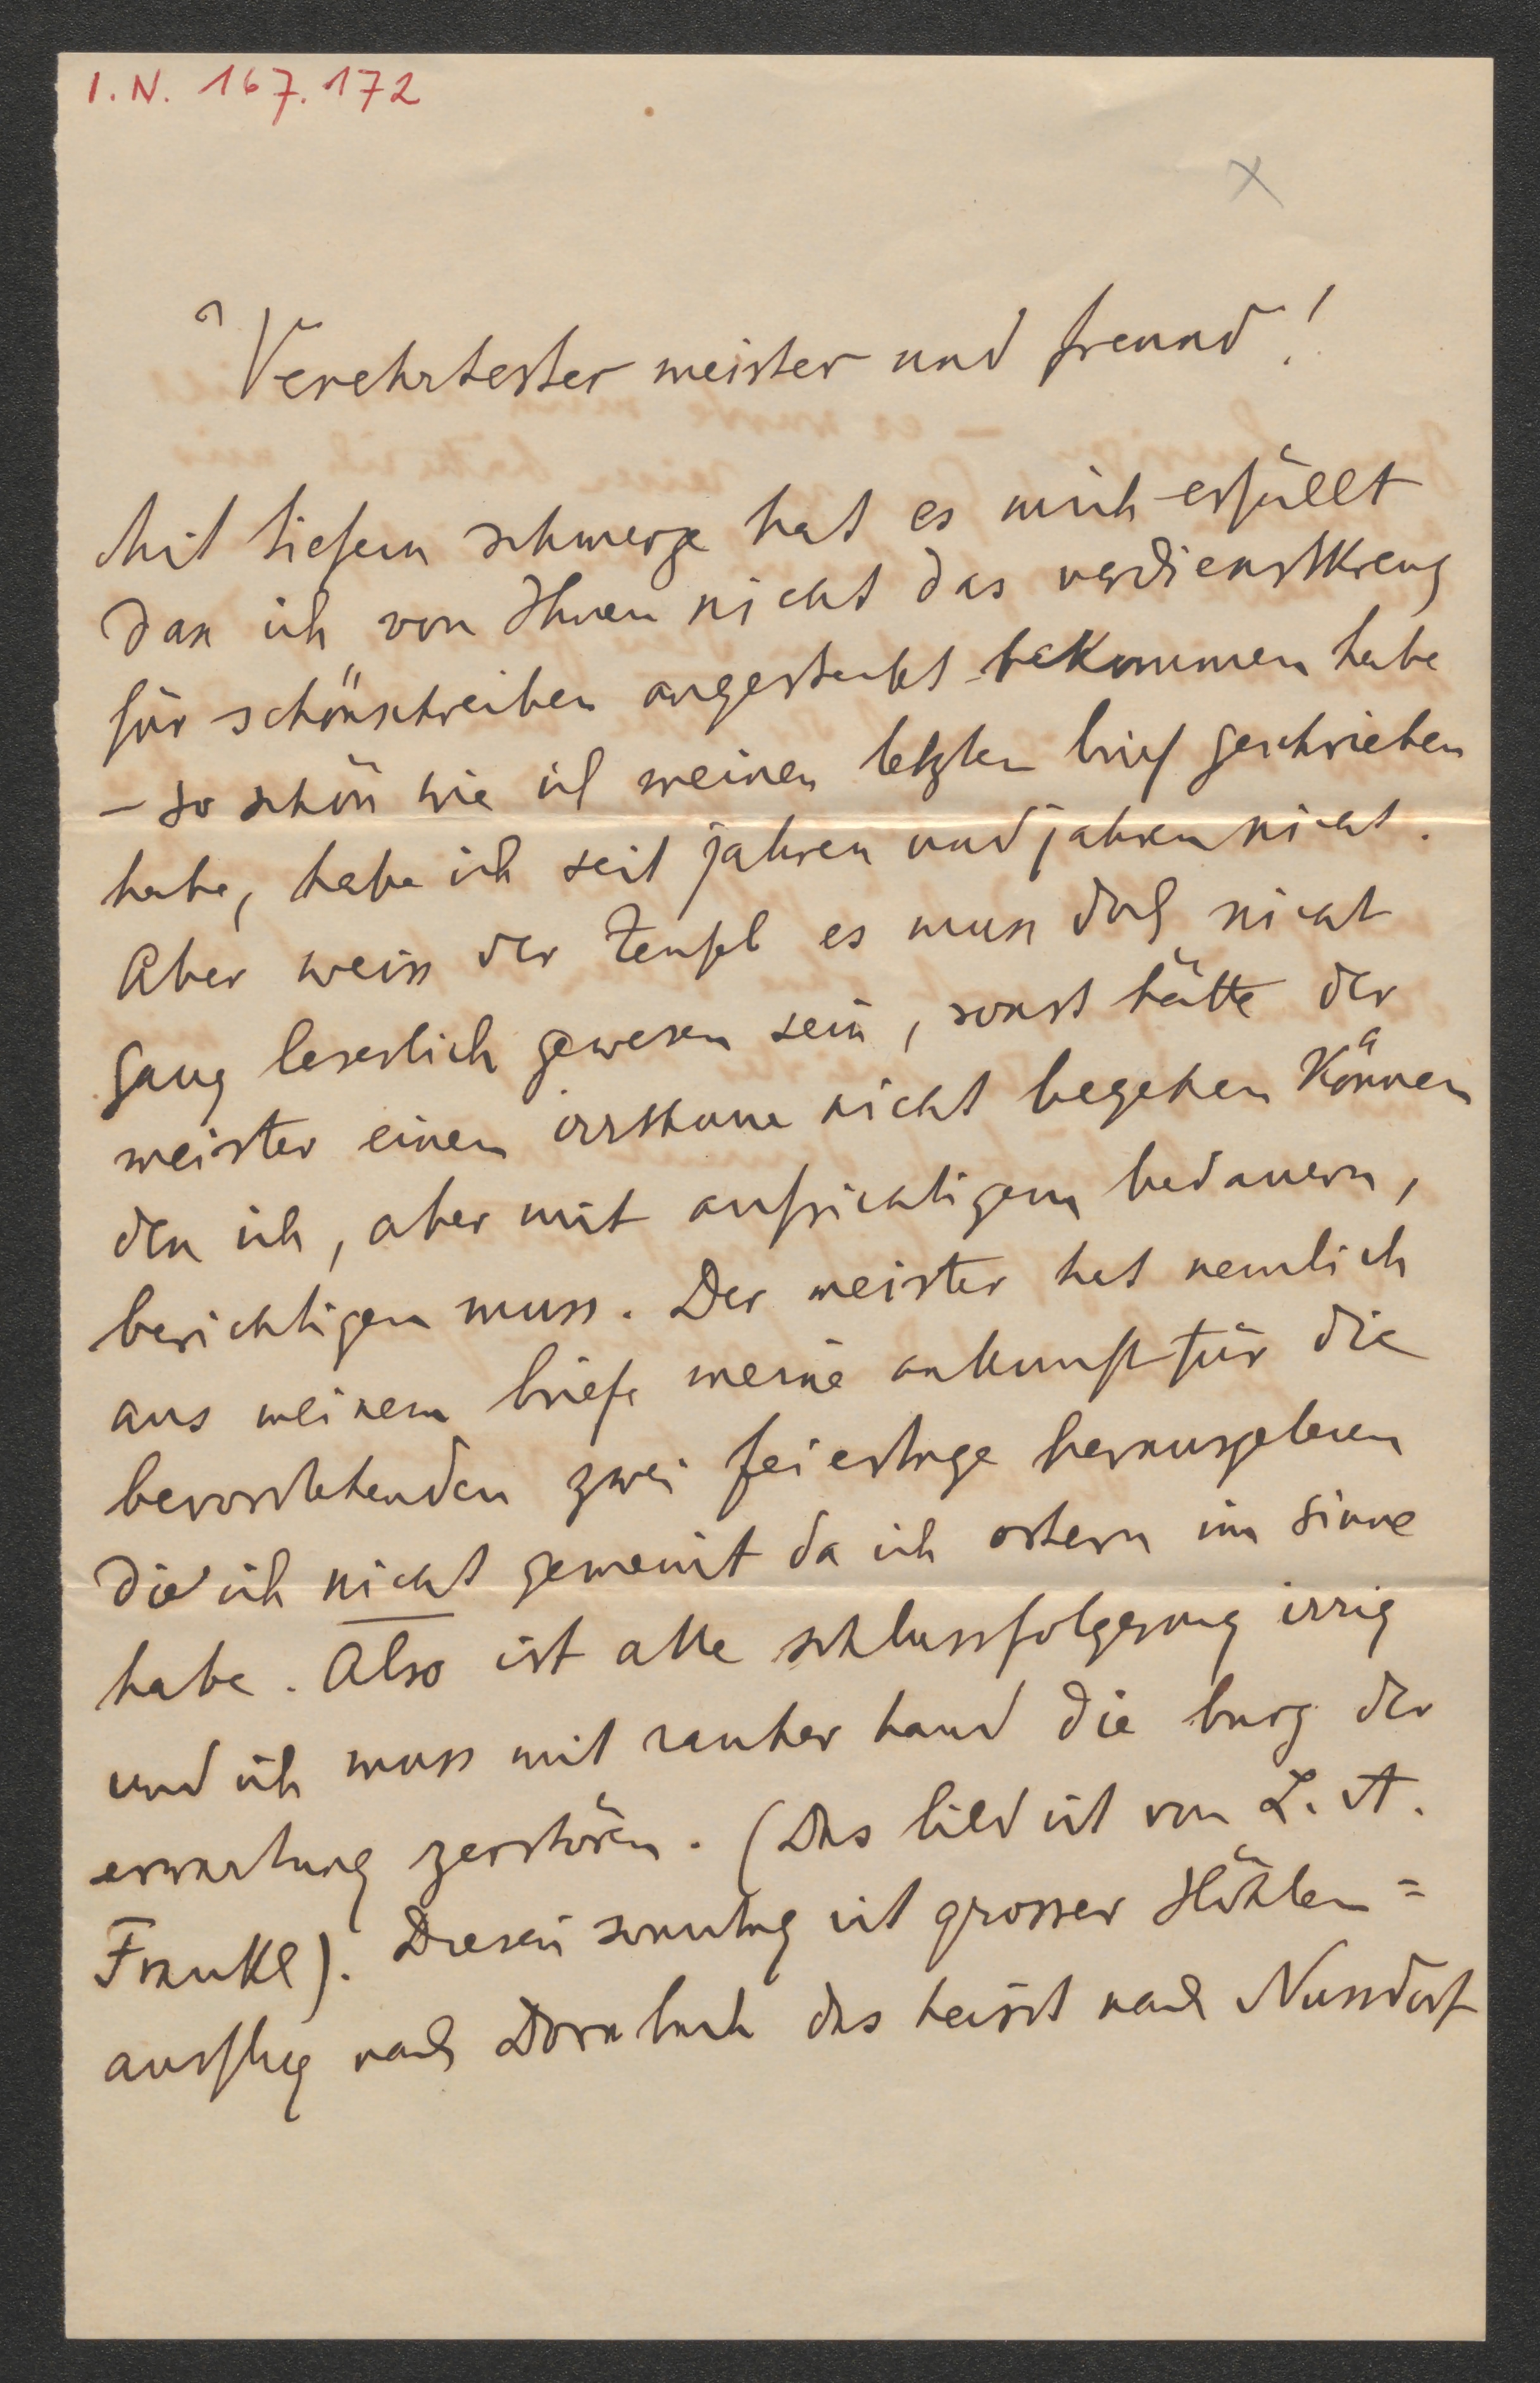 I. N. 167.172
x
Verehrtester meister und freund!
Mit tiefem schmerze hat es mich erfüllt
dass ich von Ihnen nicht das verdienstkreuz
für schönschreiben angesteckt bekommen habe
– so schön wie ich meinen letzten brief geschrieben
habe, habe ich seit jahren und jahren nicht.
Aber weiss der teufel es muss doch nicht
ganz leserlich gewesen sein, sonst hätte der
meister einen irrthum nicht begehen können
den ich, aber mit aufrichtigem bedauern,
berichtigen muss. Der meister hat nemlich
aus meinem briefe meine ankunft für die
bevorstehenden zwei feiertage herausgelesen
die ich nicht gemeint da ich ostern im sinne
habe. Also ist alle schlussfolgerung irrig
und ich muss mit rauher hand die burg der
erwartung zerstören. (Das bild ist von L. A.
Frankl). Diesen sonntag ist grosser Höhlen=
ausflug nach Dornbach das heisst nach Nussdorf